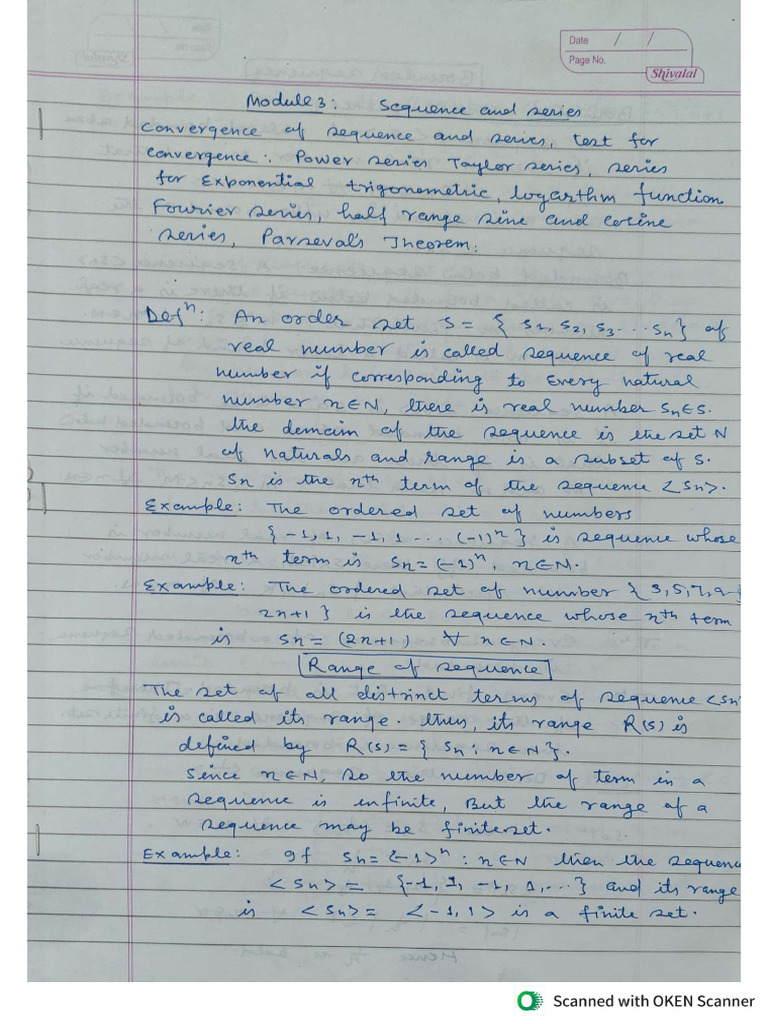 Date / /
Page No.
Shivalal
Module 3: Sequence and series
Convergence of sequence and series, test for
convergence:. Power series Taylor series, series
for Exponential trigonometric, logarthm function
Fourier series, half range sine and cosine
series, Parseval's Theorem:
Defⁿ: An order set S = { S1, S2, S3 ... Sn } of
real number is called sequence of real
number if corresponding to every natural
number n∈N, there is real number Sn∈S.
the domain of the sequence is the set N
of naturals and range is a subset of S.
Sn is the nth term of the sequence <Sn>.
Example: The ordered set of numbers
{ -1, 1, -1, 1 ... (-1)ⁿ } is sequence whose
nth term is Sn = (-1)ⁿ, n∈N.
Example: The ordered set of number { 3, 5, 7, 9
2n+1 } is the sequence whose nth term
is Sn = (2n+1) ∀ n∈N.
Range of sequence
The set of all distrinct terms of sequence <Sn
is called its range. thus, its range R(s) is
defined by R(s) = { Sn : n∈N }.
Since n∈N, so the number of term in a
sequence is infinite, But the range of a
sequence may be finite set.
Example: If Sn = (-1)ⁿ : n∈N then the sequenc
<Sn> = {-1, 1, -1, 1, ...} and its range
is <Sn> = <-1, 1> is a finite set.
Scanned with OKEN Scanner